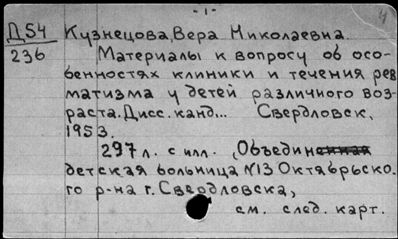 - 1 -
4
Д54 Кузнецова, Вера Николаевна.
236 Материалы к вопросу об осо-
бенностях клиники и течения рев
матизма у детей различного воз-
раста. Дисс. канд... Свердловск,
1953.
297 л. с илл. (Объединенная
детская больница №13 Октябрьско-
го р-на г. Свердловска,
см. след. карт.